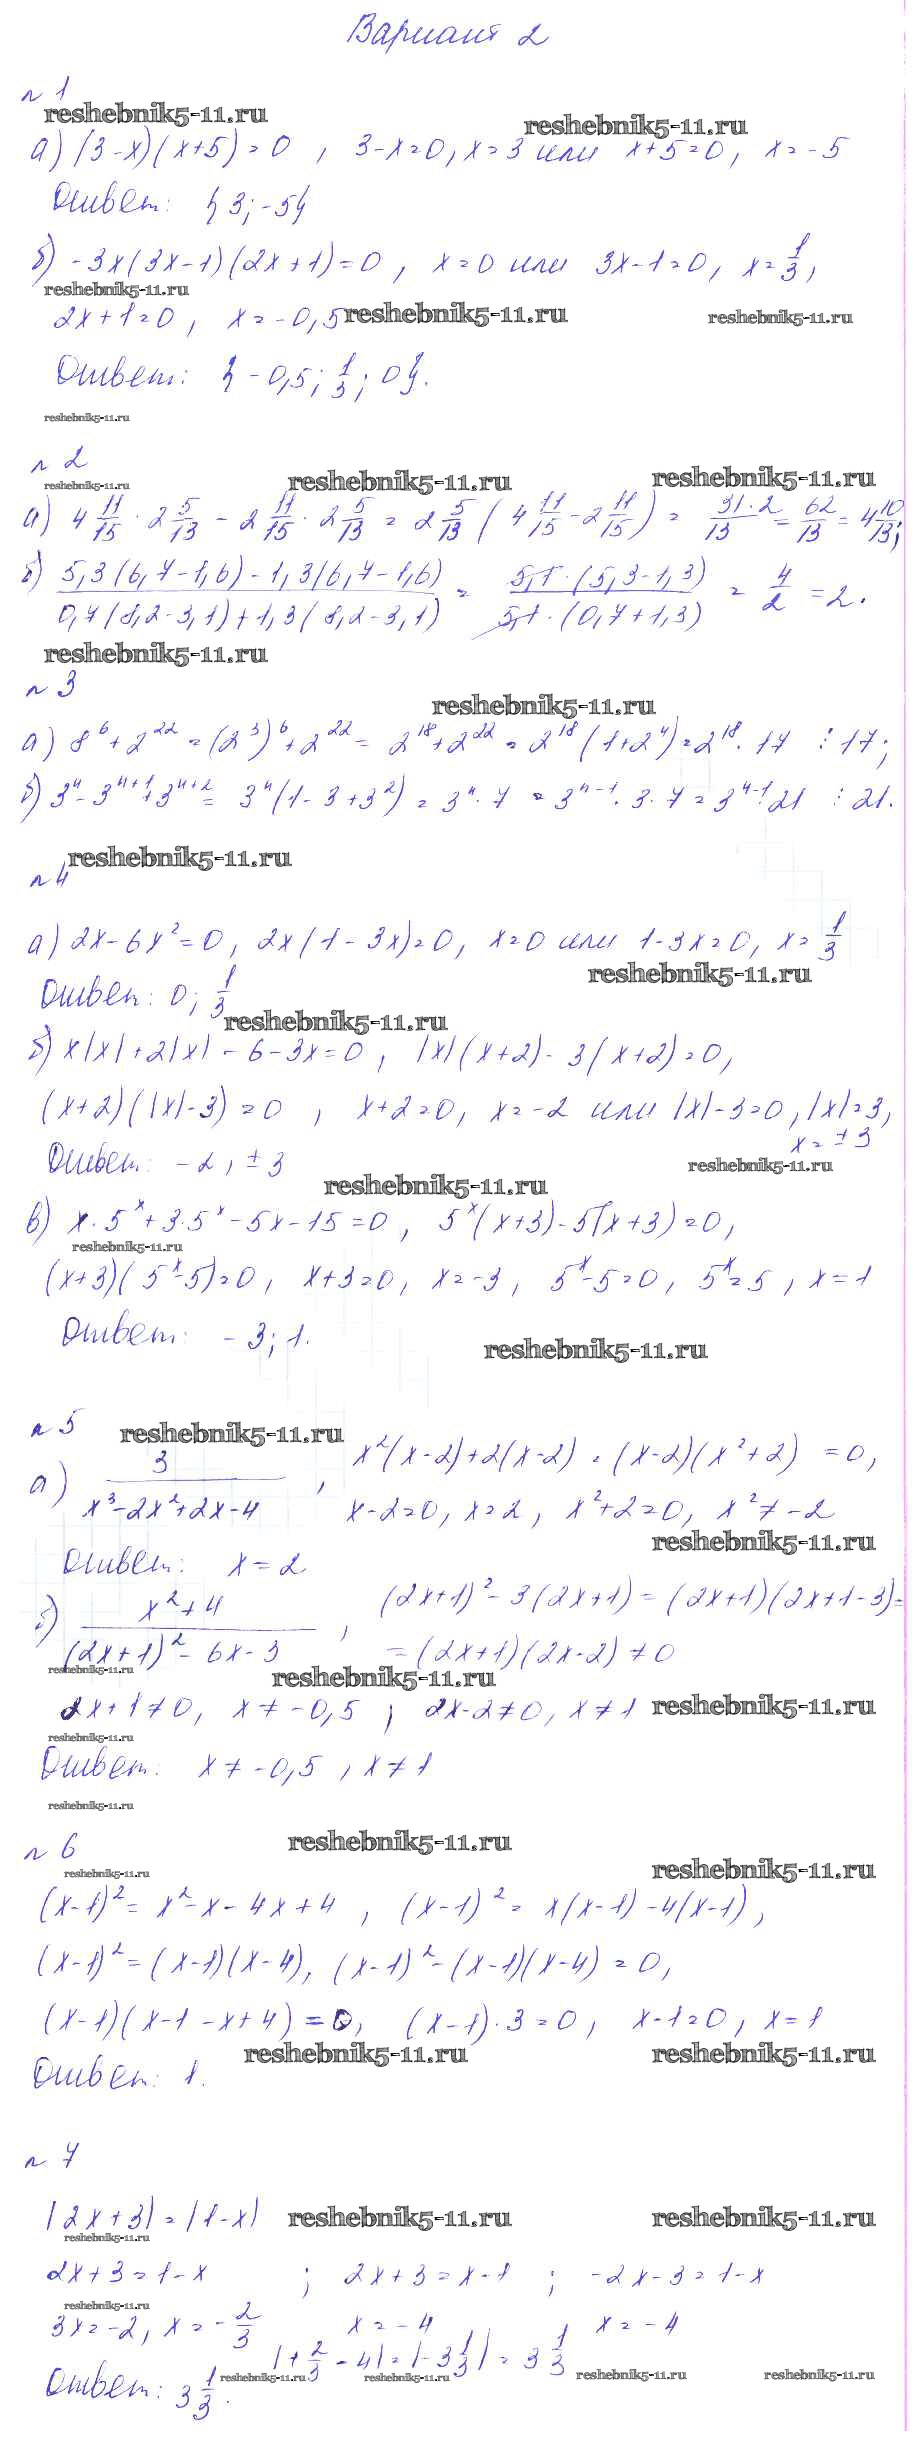 Вариант 2
№ 1
reshebnik5-11.ru reshebnik5-11.ru
а) (3-x)(x+5)=0 , 3-x=0, x=3 или x+5=0, x=-5
Ответ: {3;-5}
б) -3x(3x-1)(2x+1)=0 , x=0 или 3x-1=0, x=1/3,
reshebnik5-11.ru
2x+1=0 , x=-0,5 reshebnik5-11.ru reshebnik5-11.ru
Ответ: {-0,5; 1/3; 0}.
reshebnik5-11.ru
№ 2
reshebnik5-11.ru reshebnik5-11.ru reshebnik5-11.ru
а) 4 11/15 · 2 5/13 - 2 11/15 · 2 5/13 = 2 5/13 (4 11/15 - 2 11/15) = 31·2/13 = 62/13 = 4 10/13;
б) 5,3(6,7-1,6)-1,3(6,7-1,6) / 0,7(8,2-3,1)+1,3(8,2-3,1) = 5,1·(5,3-1,3) / 5,1·(0,7+1,3) = 4/2 = 2.
reshebnik5-11.ru
№ 3
reshebnik5-11.ru
а) 8⁶+2²²=(2³)⁶+2²²= 2¹⁸+2²² = 2¹⁸(1+2⁴)=2¹⁸·17 ⋮17;
б) 3ⁿ-3ⁿ⁺¹+3ⁿ⁺²= 3ⁿ(1-3+3²) = 3ⁿ·7 = 3ⁿ⁻¹·3·7=3ⁿ⁻¹·21 ⋮21.
reshebnik5-11.ru
№ 4
а) 2x-6x²=0, 2x(1-3x)=0, x=0 или 1-3x=0, x=1/3
reshebnik5-11.ru
Ответ: 0; 1/3
reshebnik5-11.ru
б) x|x|+2|x|-6-3x=0 , |x|(x+2)-3(x+2)=0,
(x+2)(|x|-3)=0 , x+2=0, x=-2 или |x|-3=0, |x|=3,
x=±3
Ответ: -2, ±3
reshebnik5-11.ru
reshebnik5-11.ru
в) x·5ˣ+3·5ˣ-5x-15=0 , 5ˣ(x+3)-5(x+3)=0,
reshebnik5-11.ru
(x+3)(5ˣ-5)=0, x+3=0, x=-3, 5ˣ-5=0, 5ˣ=5 , x=1
Ответ: -3; 1.
reshebnik5-11.ru
№ 5
reshebnik5-11.ru
а) 3 / x³-2x²+2x-4 , x²(x-2)+2(x-2) = (x-2)(x²+2) =0,
x-2=0, x=2, x²+2=0, x²≠-2
reshebnik5-11.ru
Ответ: x=2
б) x²+4 / (2x+1)²-6x-3 , (2x+1)²-3(2x+1)=(2x+1)(2x+1-3)=
=(2x+1)(2x-2)≠0
reshebnik5-11.ru reshebnik5-11.ru
2x+1≠0, x≠-0,5 ; 2x-2≠0, x≠1 reshebnik5-11.ru
reshebnik5-11.ru
Ответ: x≠-0,5 , x≠1
reshebnik5-11.ru
№ 6
reshebnik5-11.ru
reshebnik5-11.ru reshebnik5-11.ru
(x-1)²= x²-x-4x+4 , (x-1)² = x(x-1)-4(x-1),
(x-1)²=(x-1)(x-4), (x-1)²-(x-1)(x-4)=0,
(x-1)(x-1-x+4)=0, (x-1)·3=0, x-1=0, x=1
reshebnik5-11.ru reshebnik5-11.ru
Ответ: 1.
№ 7
|2x+3|=|1-x| reshebnik5-11.ru reshebnik5-11.ru
reshebnik5-11.ru
2x+3=1-x ; 2x+3=x-1 ; -2x-3=1-x
reshebnik5-11.ru
3x=-2, x=-2/3 x=-4 x=-4
|+2/3-4|=|-3 1/3|=3 1/3
reshebnik5-11.ru reshebnik5-11.ru reshebnik5-11.ru reshebnik5-11.ru
Ответ: 3 1/3.